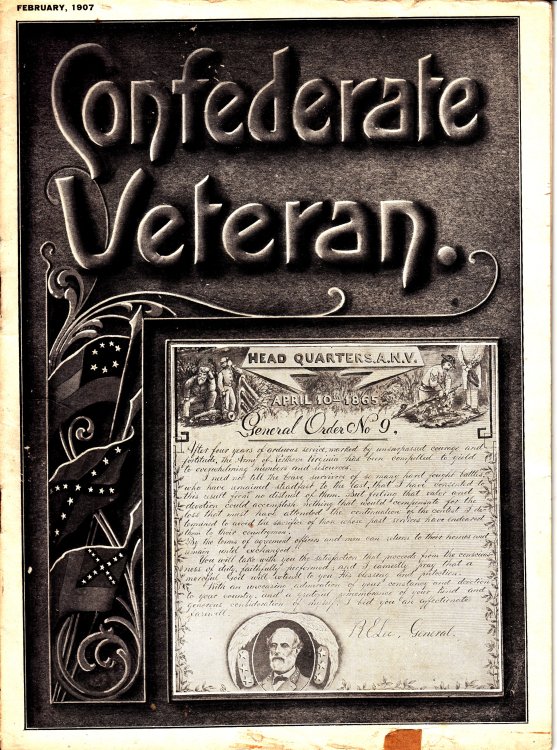 FEBRUARY, 1907
Confederate
Veteran.
HEAD QUARTERS. A.N.V.
APRIL 10th 1865.
General Order No 9.
After four years of arduous service, marked by unsurpassed courage and
fortitude, the Army of Northern Virginia has been compelled to yield
to overwhelming numbers and resources.
I need not tell the brave survivors of so many hard fought battles
who have remained steadfast to the last that I have consented to
this result from no distrust of them. But feeling that valor and
devotion could accomplish nothing that would compensate for the
loss that must have attended the continuation of the contest I de-
termined to avoid the sacrifice of those whose past services have endeared
them to their countrymen.
By the terms of agreement officers and men can return to their homes and
remain until exchanged.
You will take with you the satisfaction that proceeds from the conscious-
ness of duty, faithfully performed; and I earnestly pray that a
merciful God will extend to you His blessing and protection.
With an increasing admiration of your constancy and devotion
to your country, and a grateful remembrance of your kind and
generous consideration of myself, I bid you an affectionate
farewell.
R E Lee, General.